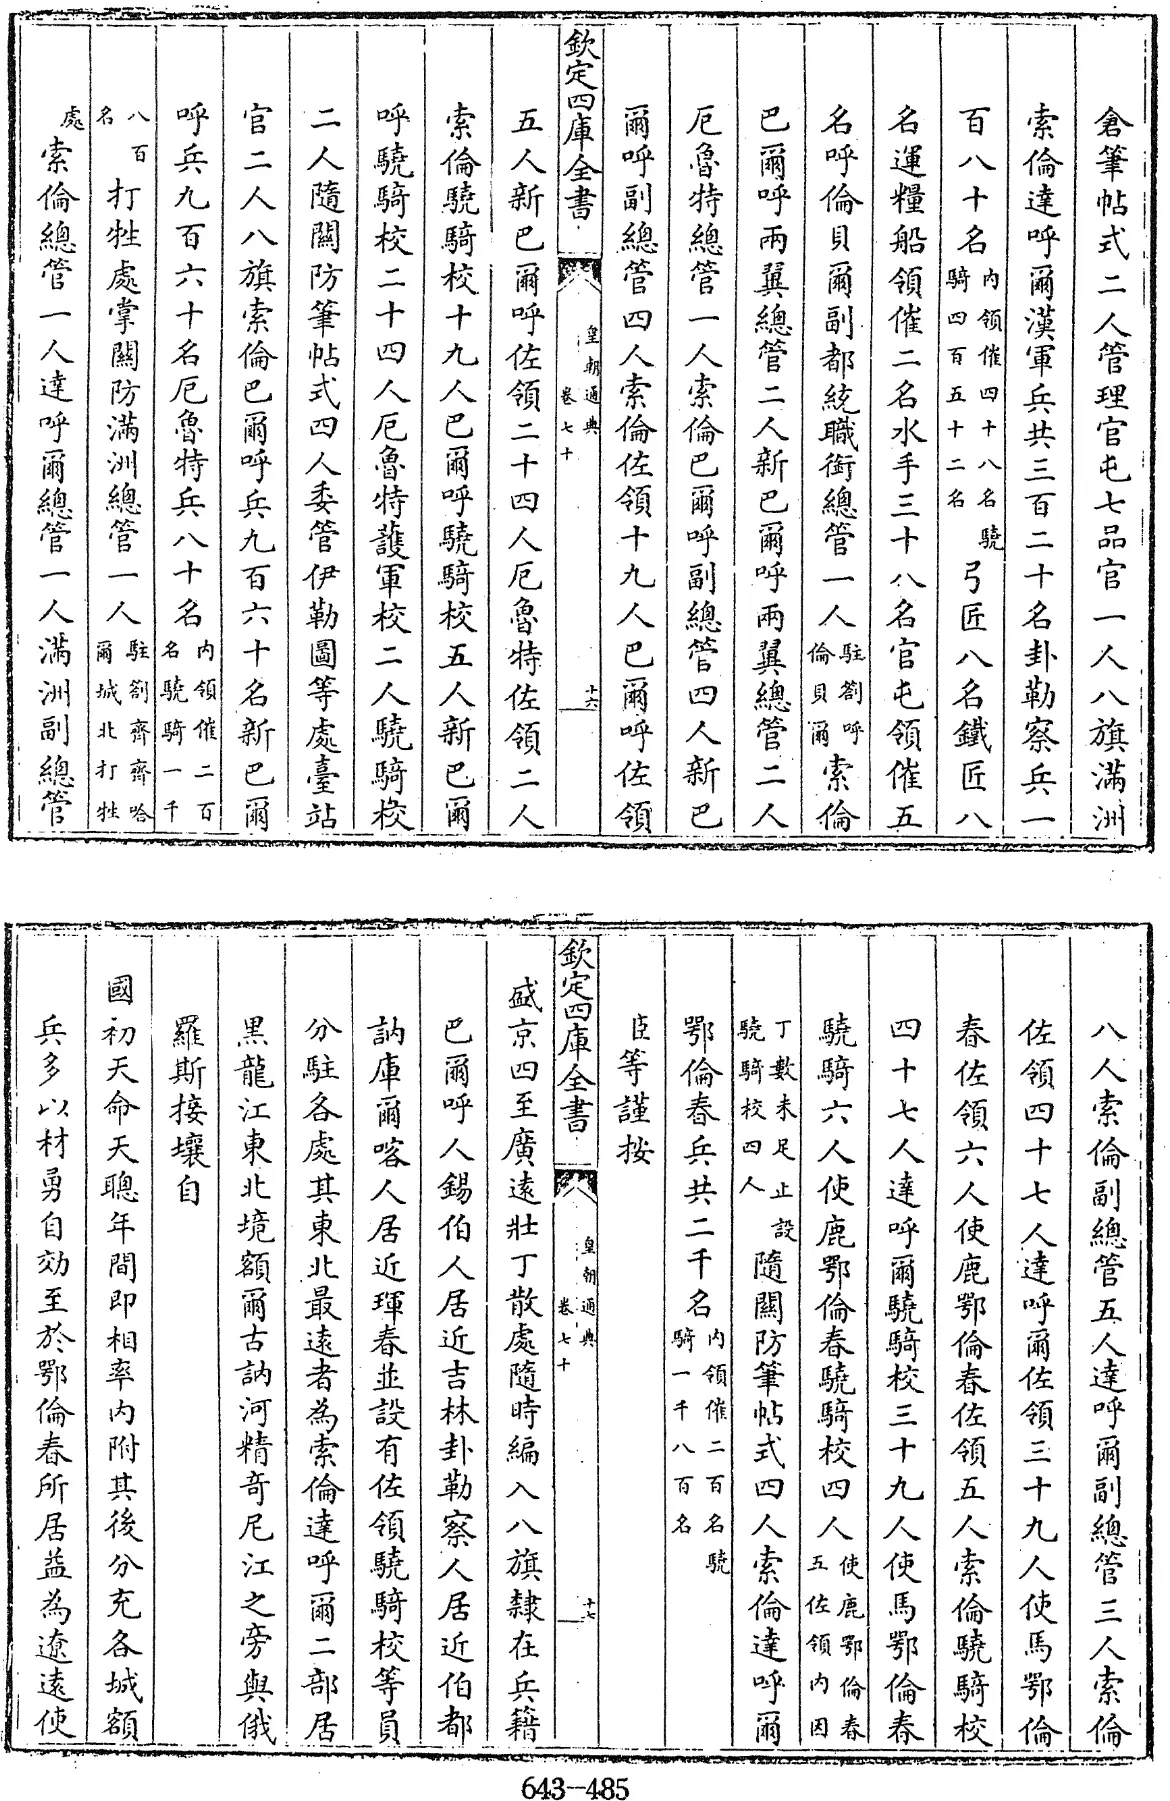 倉筆帖式二人管理官屯七品官一人八旗滿洲
索倫達呼爾漢軍兵共三百二十名卦勒察兵一
百八十名內領催四十八名驍騎四百五十二名弓匠八名鐵匠八
名運糧船領催二名水手三十八名官屯領催五
名呼倫貝爾副都統職銜總管一人駐劄呼倫貝爾索倫
巴爾呼兩翼總管二人新巴爾呼兩翼總管二人
厄魯特總管一人索倫巴爾呼副總管四人新巴
爾呼副總管四人索倫佐領十九人巴爾呼佐領
欽定四庫全書
皇朝通典
卷七十
十六
五人新巴爾呼佐領二十四人厄魯特佐領二人
索倫驍騎校十九人巴爾呼驍騎校五人新巴爾
呼驍騎校二十四人厄魯特護軍校二人驍騎校
二人隨關防筆帖式四人委管伊勒圖等處臺站
官二人八旗索倫巴爾呼兵九百六十名新巴爾
呼兵九百六十名厄魯特兵八十名內領催二百名驍騎一千
八百名打牲處掌關防滿洲總管一人駐劄齊齊哈爾城北打牲
處索倫總管一人達呼爾總管一人滿洲副總管
八人索倫副總管五人達呼爾副總管三人索倫
佐領四十七人達呼爾佐領三十九人使馬鄂倫
春佐領六人使鹿鄂倫春佐領五人索倫驍騎校
四十七人達呼爾驍騎校三十九人使馬鄂倫春
驍騎六人使鹿鄂倫春驍騎校四人使鹿鄂倫春五佐領內因
丁數未足止設驍騎校四人隨關防筆帖式四人索倫達呼爾
鄂倫春兵共二千名內領催二百名驍騎一千八百名
臣等謹按
欽定四庫全書
皇朝通典
卷七十
十七
盛京四至廣遠壯丁散處隨時編入八旗隸在兵籍
巴爾呼人錫伯人居近吉林卦勒察人居近伯都
訥庫爾喀人居近琿春並設有佐領驍騎校等員
分駐各處其東北最遠者為索倫達呼爾二部居
黑龍江東北境額爾古訥河精奇尼江之旁與俄
羅斯接壤自
國初天命天聰年間即相率內附其後分充各城額
兵多以材勇自効至於鄂倫春所居益為遼遠使
643-485